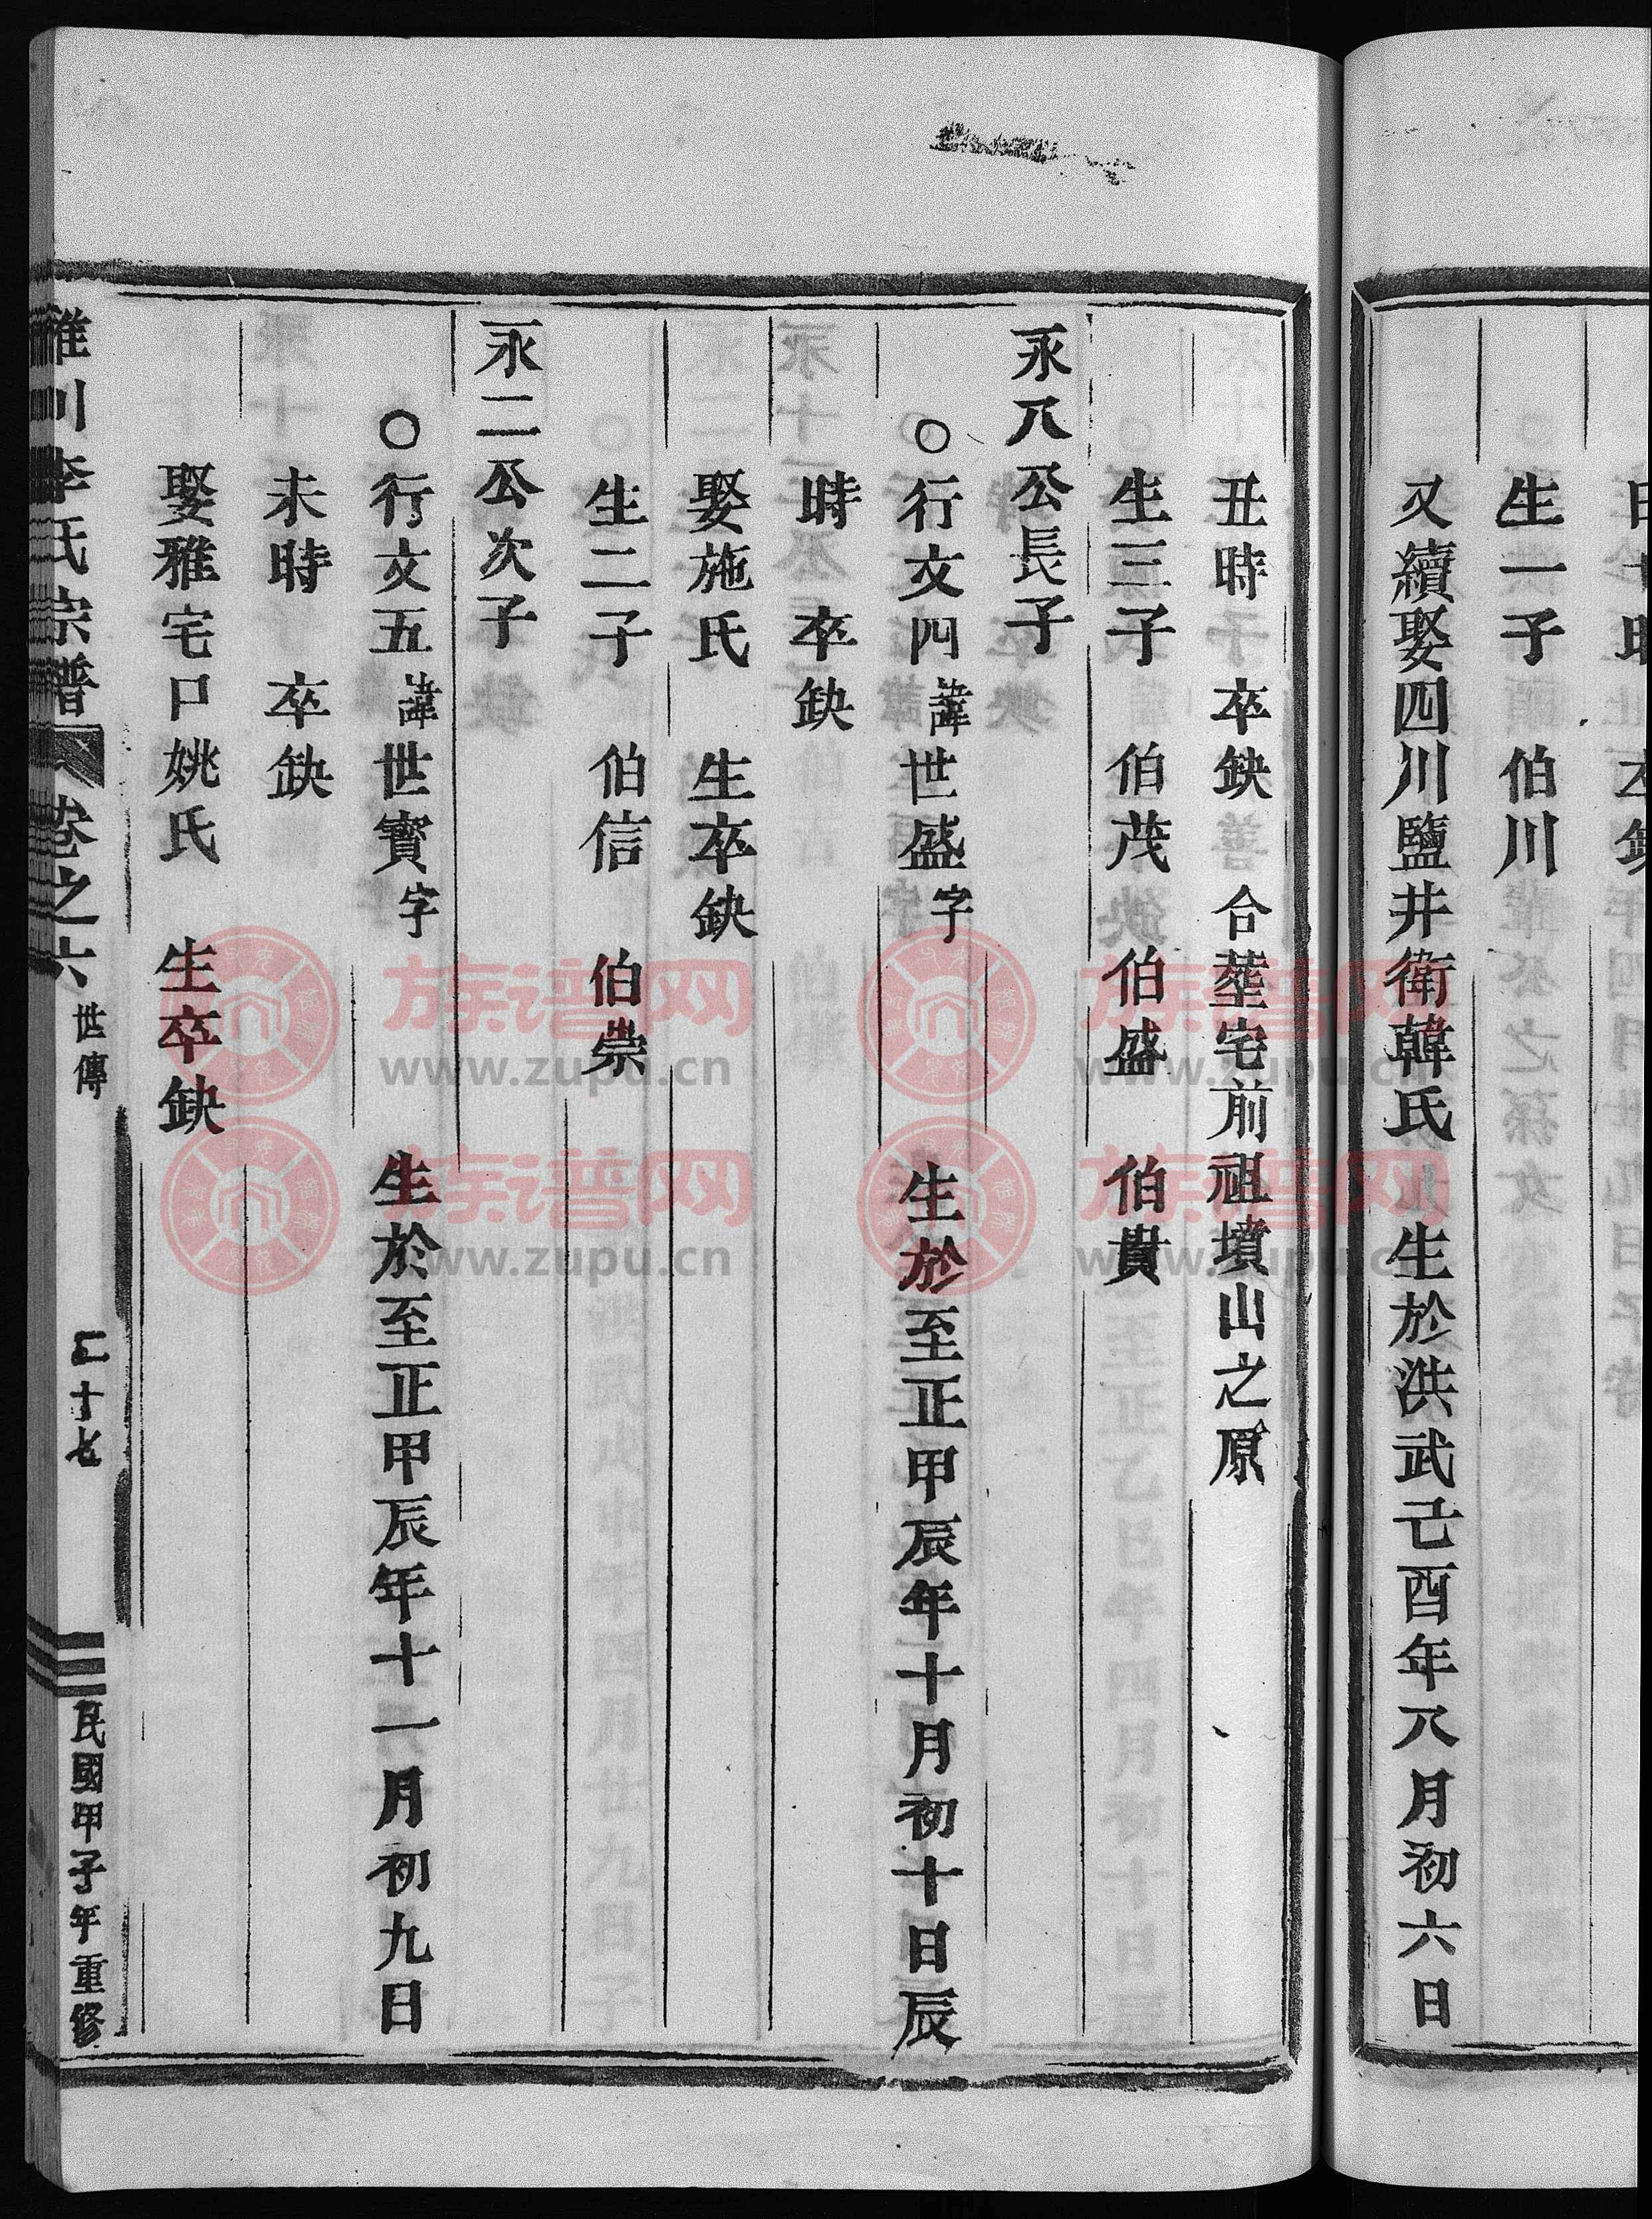 生一子　伯川
又續娶四川鹽井衛韓氏　生於洪武己酉年八月初六日
丑時　卒缺　合塟宅前祖墳山之原
生三子　伯茂　伯盛　伯貴
永八公長子
○行文四諱世盛字　生於至正甲辰年十月初十日辰
時　卒缺
娶施氏　生卒缺
生二子　伯信　伯崇
永二公次子
○行文五諱世寶字　生於至正甲辰年十一月初九日
未時　卒缺
娶雅宅口姚氏　生卒缺
李氏宗譜　卷之六　世傳　二十七　民國甲子年重修
族谱网
www.zupu.cn
族谱网
www.zupu.cn
族谱网
www.zupu.cn
族谱网
www.zupu.cn